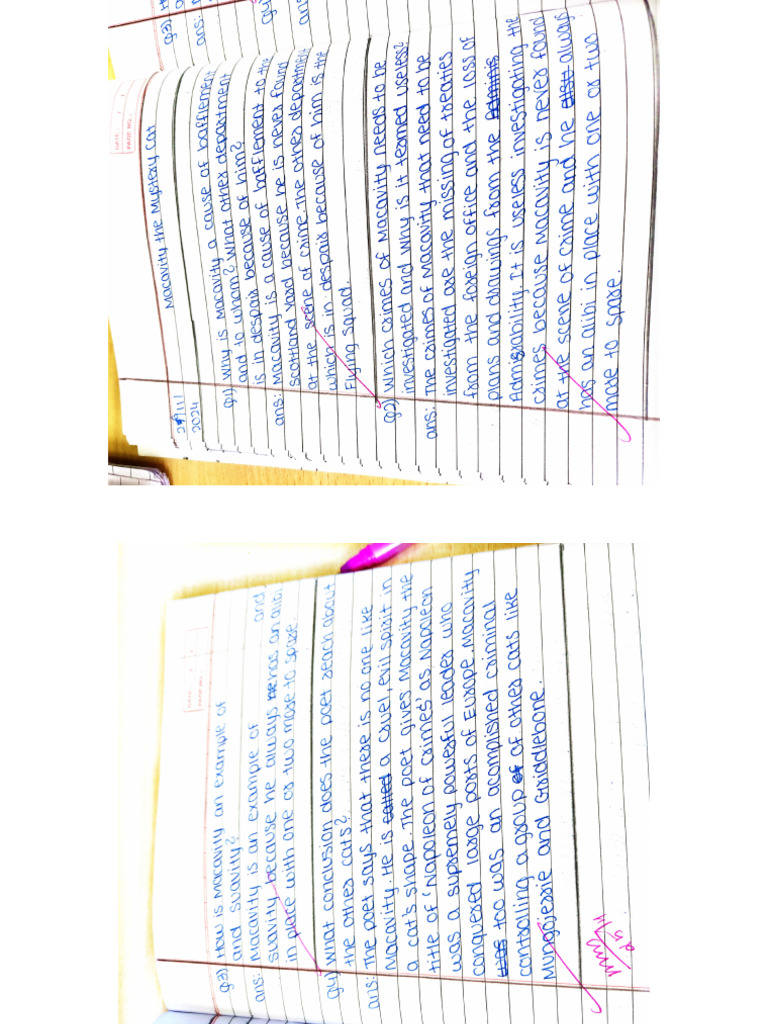 DATE
PAGE NO.
Macavity the Mystery Cat
2024
Q1) Why is Macavity a cause of bafflement
and to whom? What other department
is in despair because of him?
ans: Macavity is a cause of bafflement to the
Scotland Yard because he is never found
at the scene of crime. The other department
which is in despair because of him is the
Flying Squad.
Q2) Which crimes of Macavity needs to be
investigated and why is it termed useless?
ans: The crimes of Macavity that need to be
investigated are the missing of treaties
from the foreign office and the loss of
plans and drawings from the
Admirability. It is useless investigating the
crimes because Macavity is never found
at the scene of crime and he always
has an alibi in place with one or two
more to spare.
DATE
PAGE NO.
Q3) How is Macavity an example of
and suavity?
ans: Macavity is an example of and
suavity because he always has an alibi
in place with one or two more to spare.
Q4) What conclusion does the poet reach about
the other cats?
ans: The poet says that there is no one like
Macavity. He is a cruel, evil spirit in
a cat's shape. The poet gives Macavity the
title of 'Napolean of Crimes' as Napolean
was a supremely powerful leader who
conquered large parts of Europe. Macavity
too was an acomplished criminal
controlling a group of other cats like
Mungojerrie and Griddlebone.